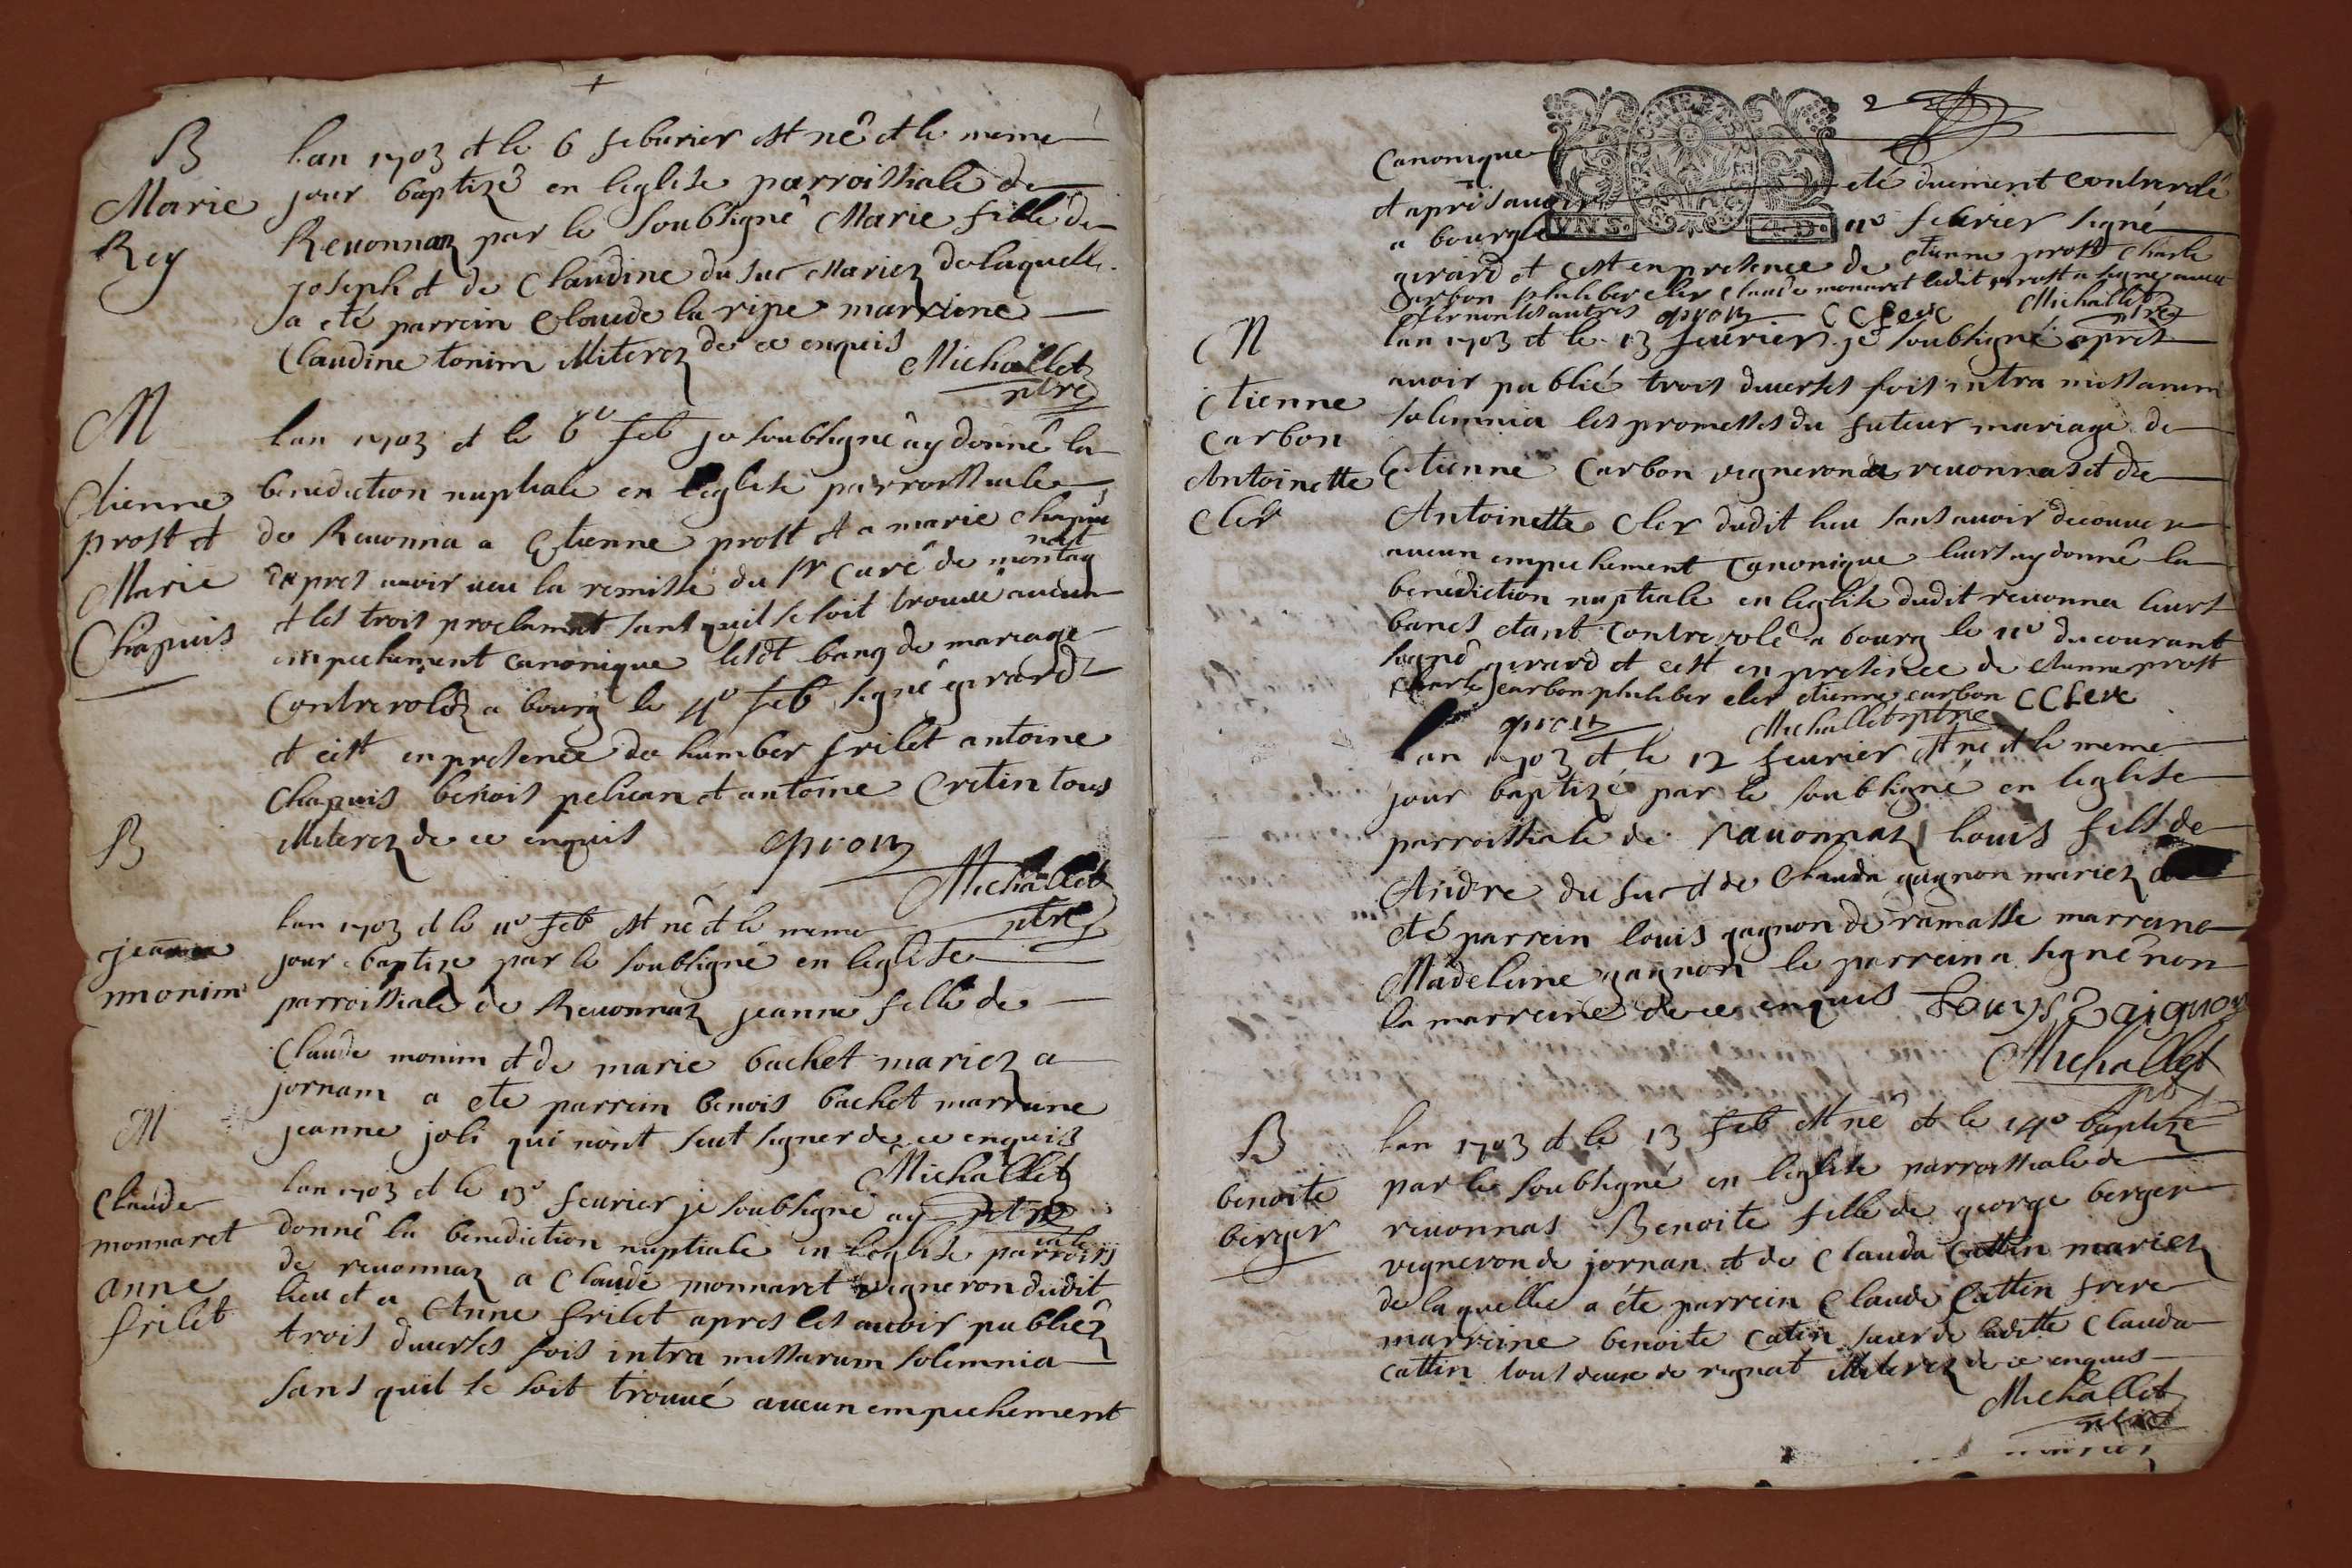 B
Marie
Rey
lan 1703 et le 6 feburier est né et le meme
jour baptizé en leglise parroissiale de
Reuonnaz par le soubsigné Marie fille de
joseph et de Claudine du suc Mariez de laquelle
a eté parrein Claude la ripe marreine
Claudine tonim illiterez de ce enquis
Michallet
ptre
M
Etienne
prost et
Marie
Chapuis
lan 1703 et le 6e feb je soubsigné ay donné la
benediction nuptiale en leglise parroissiale
de Reuonna a Etienne prost et a marie chapuis
apres auoir ueu la remisse du sr Curé de montag
nat
et les trois proclamat sans quil se soit trouué aucun
empechement canonique lesdt bang de mariage
Controrolez a bourg le 4e feb signé girard
et cest en presence de humber frilet antoine
Chapuis benois pelican et antoine Cretin tous
illiterez de ce enquis
Michallet
ptre
B
jeanne
monim
lan 1703 et le 11e feb est né et le meme
jour baptize par le soubsigné en leglise
parroissiale de Reuonnaz jeanne fille de
Claude monim et de marie bachet mariez a
jornam a ete parrein benois bachet marreine
jeanne joli qui nont seut signer de ce enquis
Michallet
ptre
M
Claude
monnaret
anne
frilet
lan 1703 et le 13e feurier je soubsigné ay
donné la benediction nuptiale en leglise parrois
iale
de reuonnaz a Claude monnaret vigneron dudit
lieu et a Anne frilet apres les auoir publiez
trois diuerses fois intra missarum solemnia
sans quil se soit trouué aucun empechement
2
Canonique
et apres auoir eté duement controrolé
a bourg le 11e feurier signé
girard et cest en presence de etienne prost Charle
Carbon philiber cler Claude monaret ledit prost a signé auec
cler non les autres CClerc Michallet
ptre
M
Etienne
Carbon
Antoinette
Cler
lan 1703 et le 13 feurier je soubsigné apres
auoir publié trois diuerses fois intra missarum
solemnia les promesses du futeur mariage de
Etienne Carbon vigneron de reuonnas et de
Antoinette Cler dudit lieu sans auoir decouuert
aucun empechement Canonique leurs ay donné la
benediction nuptiale en leglise dudit reuonna leurs
bancs etant controrolé a bourg le 11e du courant
signé girard et cest en presence de etienne prost
Charle Carbon philiber cler etienne carbon CClerc
Michallet ptre
lan 1703 et le 12 feurier est né et le meme
jour baptizé par le soubsigné en leglise
parroissiale de Rauonnaz louis fils de
Andre du suc et de Clauda gagnon mariez
eté parrein louis gagnon de ramasse marreine
Madeleine gagnon le parrein a signé non
la marreine de ce enquis Louys Gaignon
Michallet
B
benoite
berger
lan 1703 et le 13 feb est né et le 14e baptizé
par le soubsigné en leglise parroissiale de
reuonnas Benoite fille de george berger
vigneron de jornan et de Clauda Cattin mariez
de laquelle a éte parrein Claude Cattin frere
marreine benoite Catin saeur de laditte Clauda
Cattin tous deux de rignat illiterez de ce enquis
Michallet
ptre